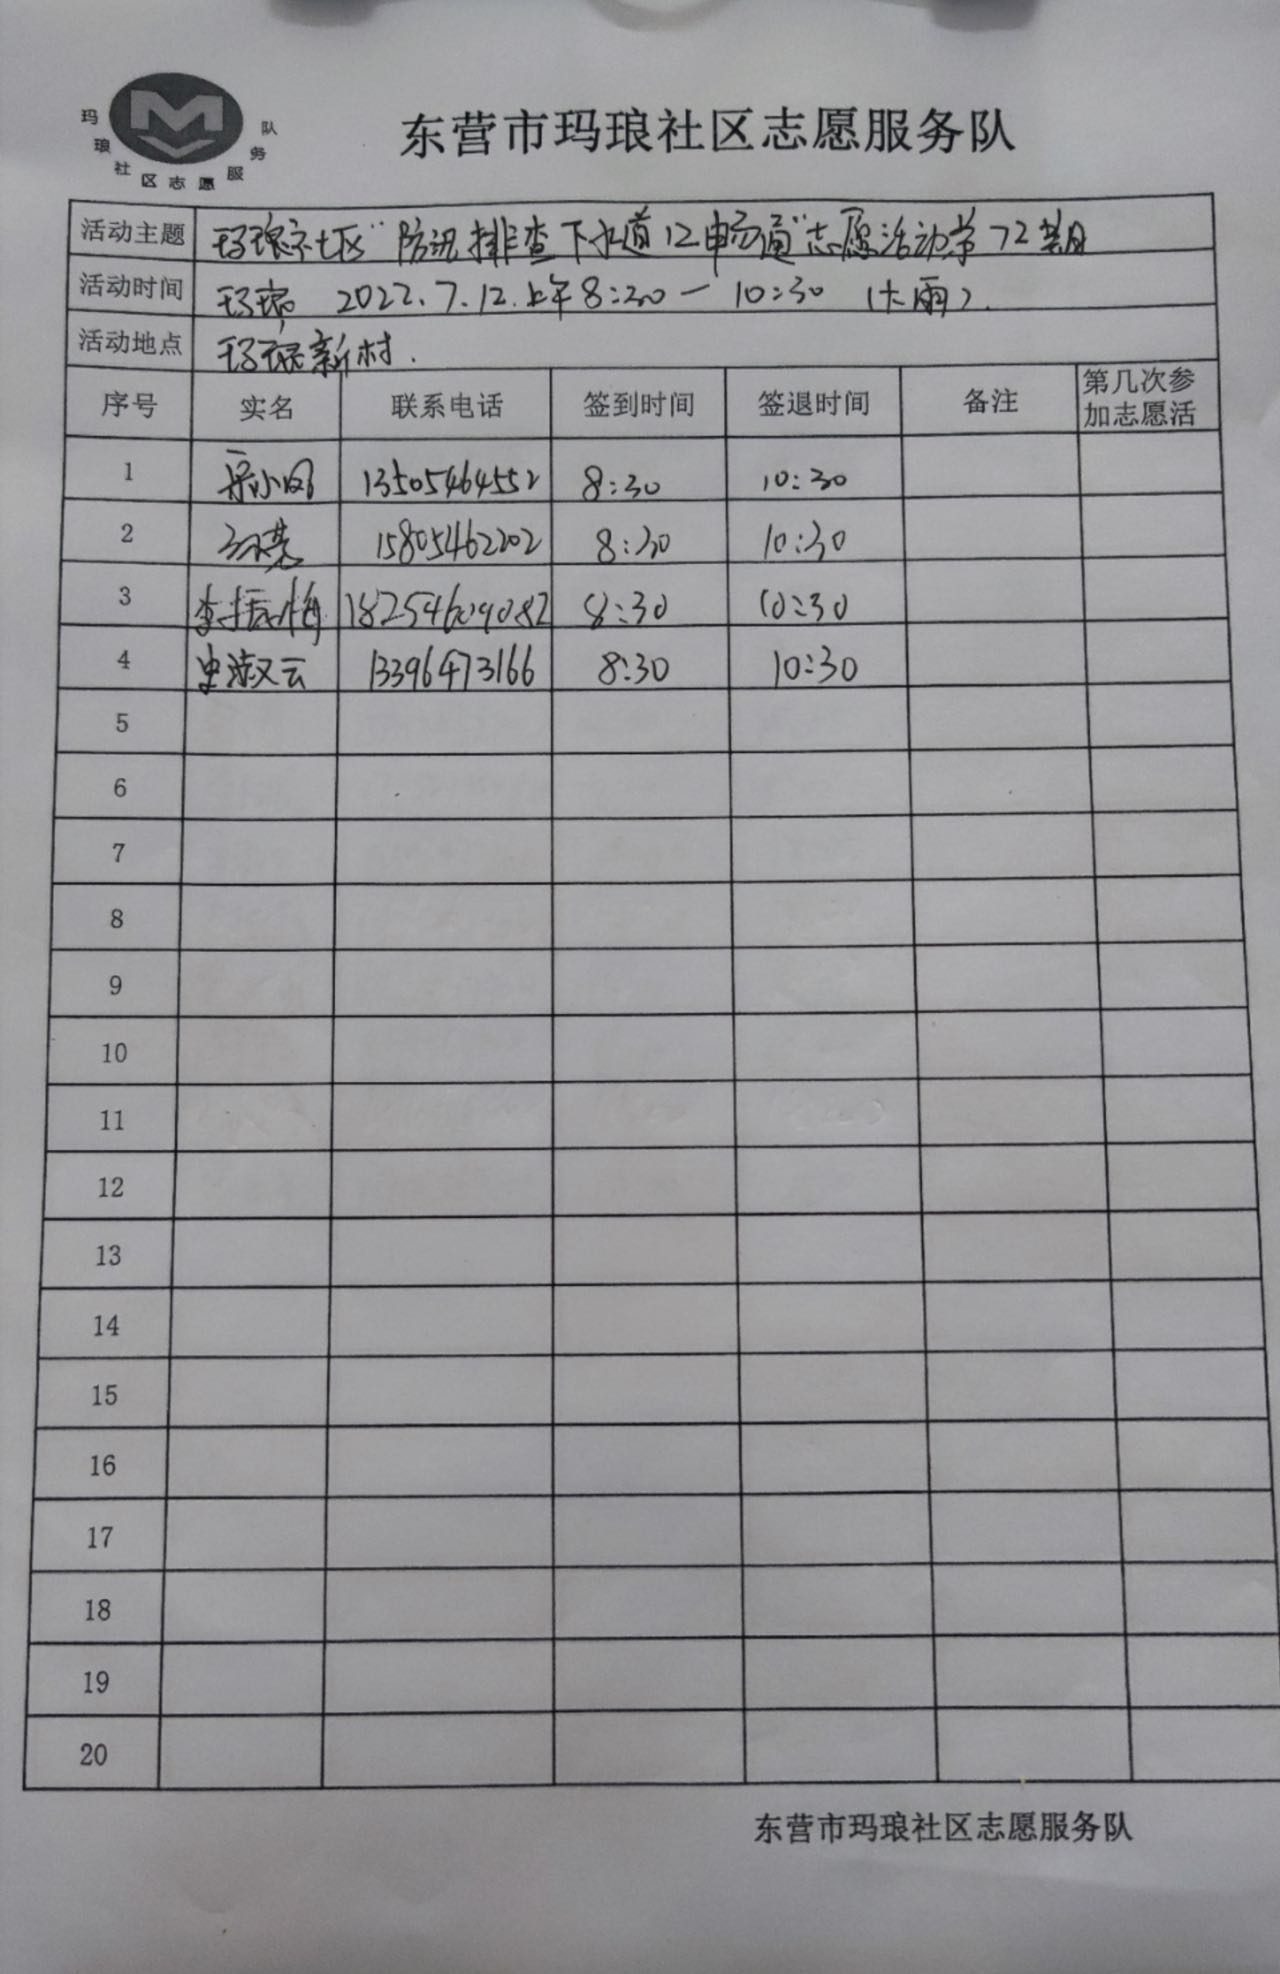 玛琅社区志愿服务队
东营市玛琅社区志愿服务队
活动主题 玛琅社区"防汛排查下水道口畅通"志愿活动第72期
活动时间 玛琅 2022.7.12.上午8:30-10:30 (大雨).
活动地点 玛琅新村.
序号 实名 联系电话 签到时间 签退时间 备注 第几次参
加志愿活
1 小凤 13505464552 8:30 10:30
2 15805462202 8:30 10:30
3 李振梅 18254609082 8:30 10:30
4 史淑云 13396473166 8:30 10:30
5
6
7
8
9
10
11
12
13
14
15
16
17
18
19
20
东营市玛琅社区志愿服务队